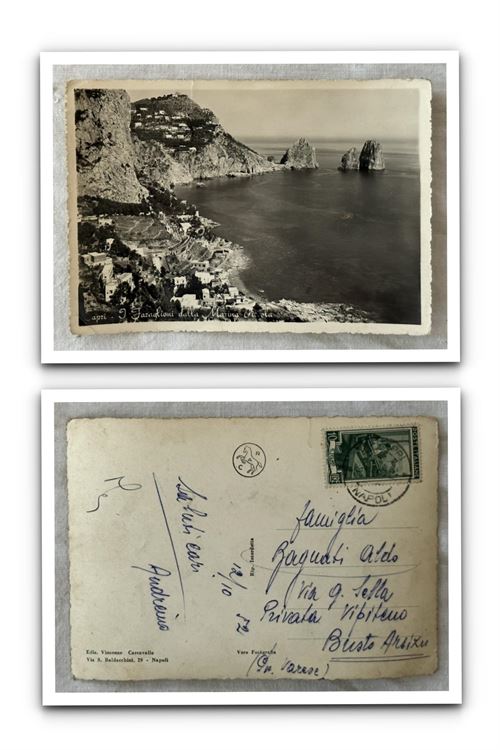 apri - I Faraglioni dalla Marina Piccola
N
C
POSTE ITALIANE
NAPOLI
Saluti cari
Andreina
12/10 52
Rip. Interdetta
Vera Fotografia
famiglia
Bagnati Aldo
Via q. Sella
Privata Vipiteno
Busto Arsizio
(Pr. Varese)
Ediz. Vincenzo Carcavallo
Via S. Baldacchini, 29 - Napoli